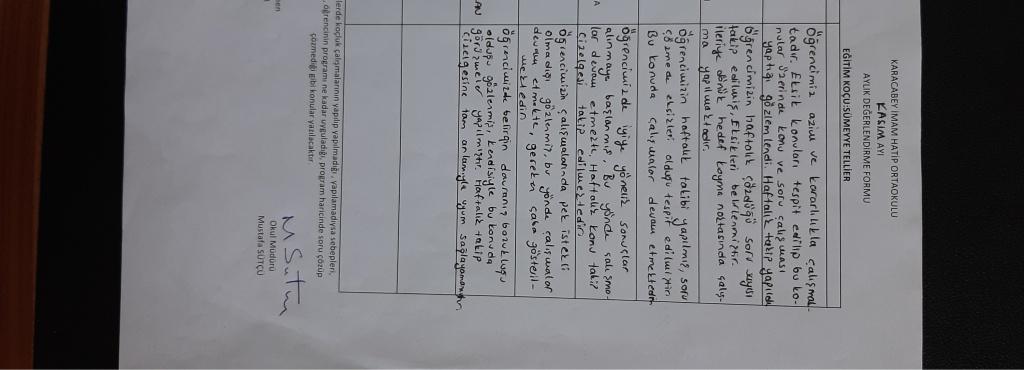 KARACABEY İMAM HATİP ORTAOKULU
KASIM AYI
AYLIK DEĞERLENDİRME FORMU
EĞİTİM KOÇU:SÜMEYYE TELLİER
Öğrencimiz azim ve kararlılıkla çalışmak-
tadır. Eksik konuları tespit edilip bu ko-
nular üzerinde konu ve soru çalışması
yaptığı gözlemlendi. Haftalık takip yapıldı
Öğrencimizin haftalık çözdüğü soru sayısı
takip edilmiş, Eksikleri belirlenmiştir.
İleriye dönük hedef koyma noktasında çalış-
ma yapılmaktadır.
Öğrencimizin haftalık takibi yapılmış, soru
çözmede eksikleri olduğu tespit edilmiştir.
Bu konuda çalışmalar devam etmektedir.
A
Öğrencimizde iyiye yönelik sonuçlar
alınmaya başlanmış, Bu yönde çalışma-
lar devam etmekte, Haftalık konu takip
çizelgesi takip edilmektedir.
Öğrencimizin çalışmalarında pek istekli
olmadığı gözlenmiş, bu yönde çalışmalar
devam etmekte, gereken çaba gösteril-
mektedir.
AN
Öğrencimizde belirgin davranış bozukluğu
olduğu gözlenmiş, kendisiyle bu konuda
görüşmeler yapılmıştır. Haftalık takip
çizelgesine tam anlamıyla uyum sağlayamamıştır.
lerde koçluk çalışmalarının yapılıp yapılmadığı, yapılamadıysa sebepleri,
öğrencinin programı ne kadar uyguladığı, program haricinde soru çözüp
çözmediği gibi konular yazılacaktır.
men
Okul Müdürü
Mustafa SÜTÇÜ